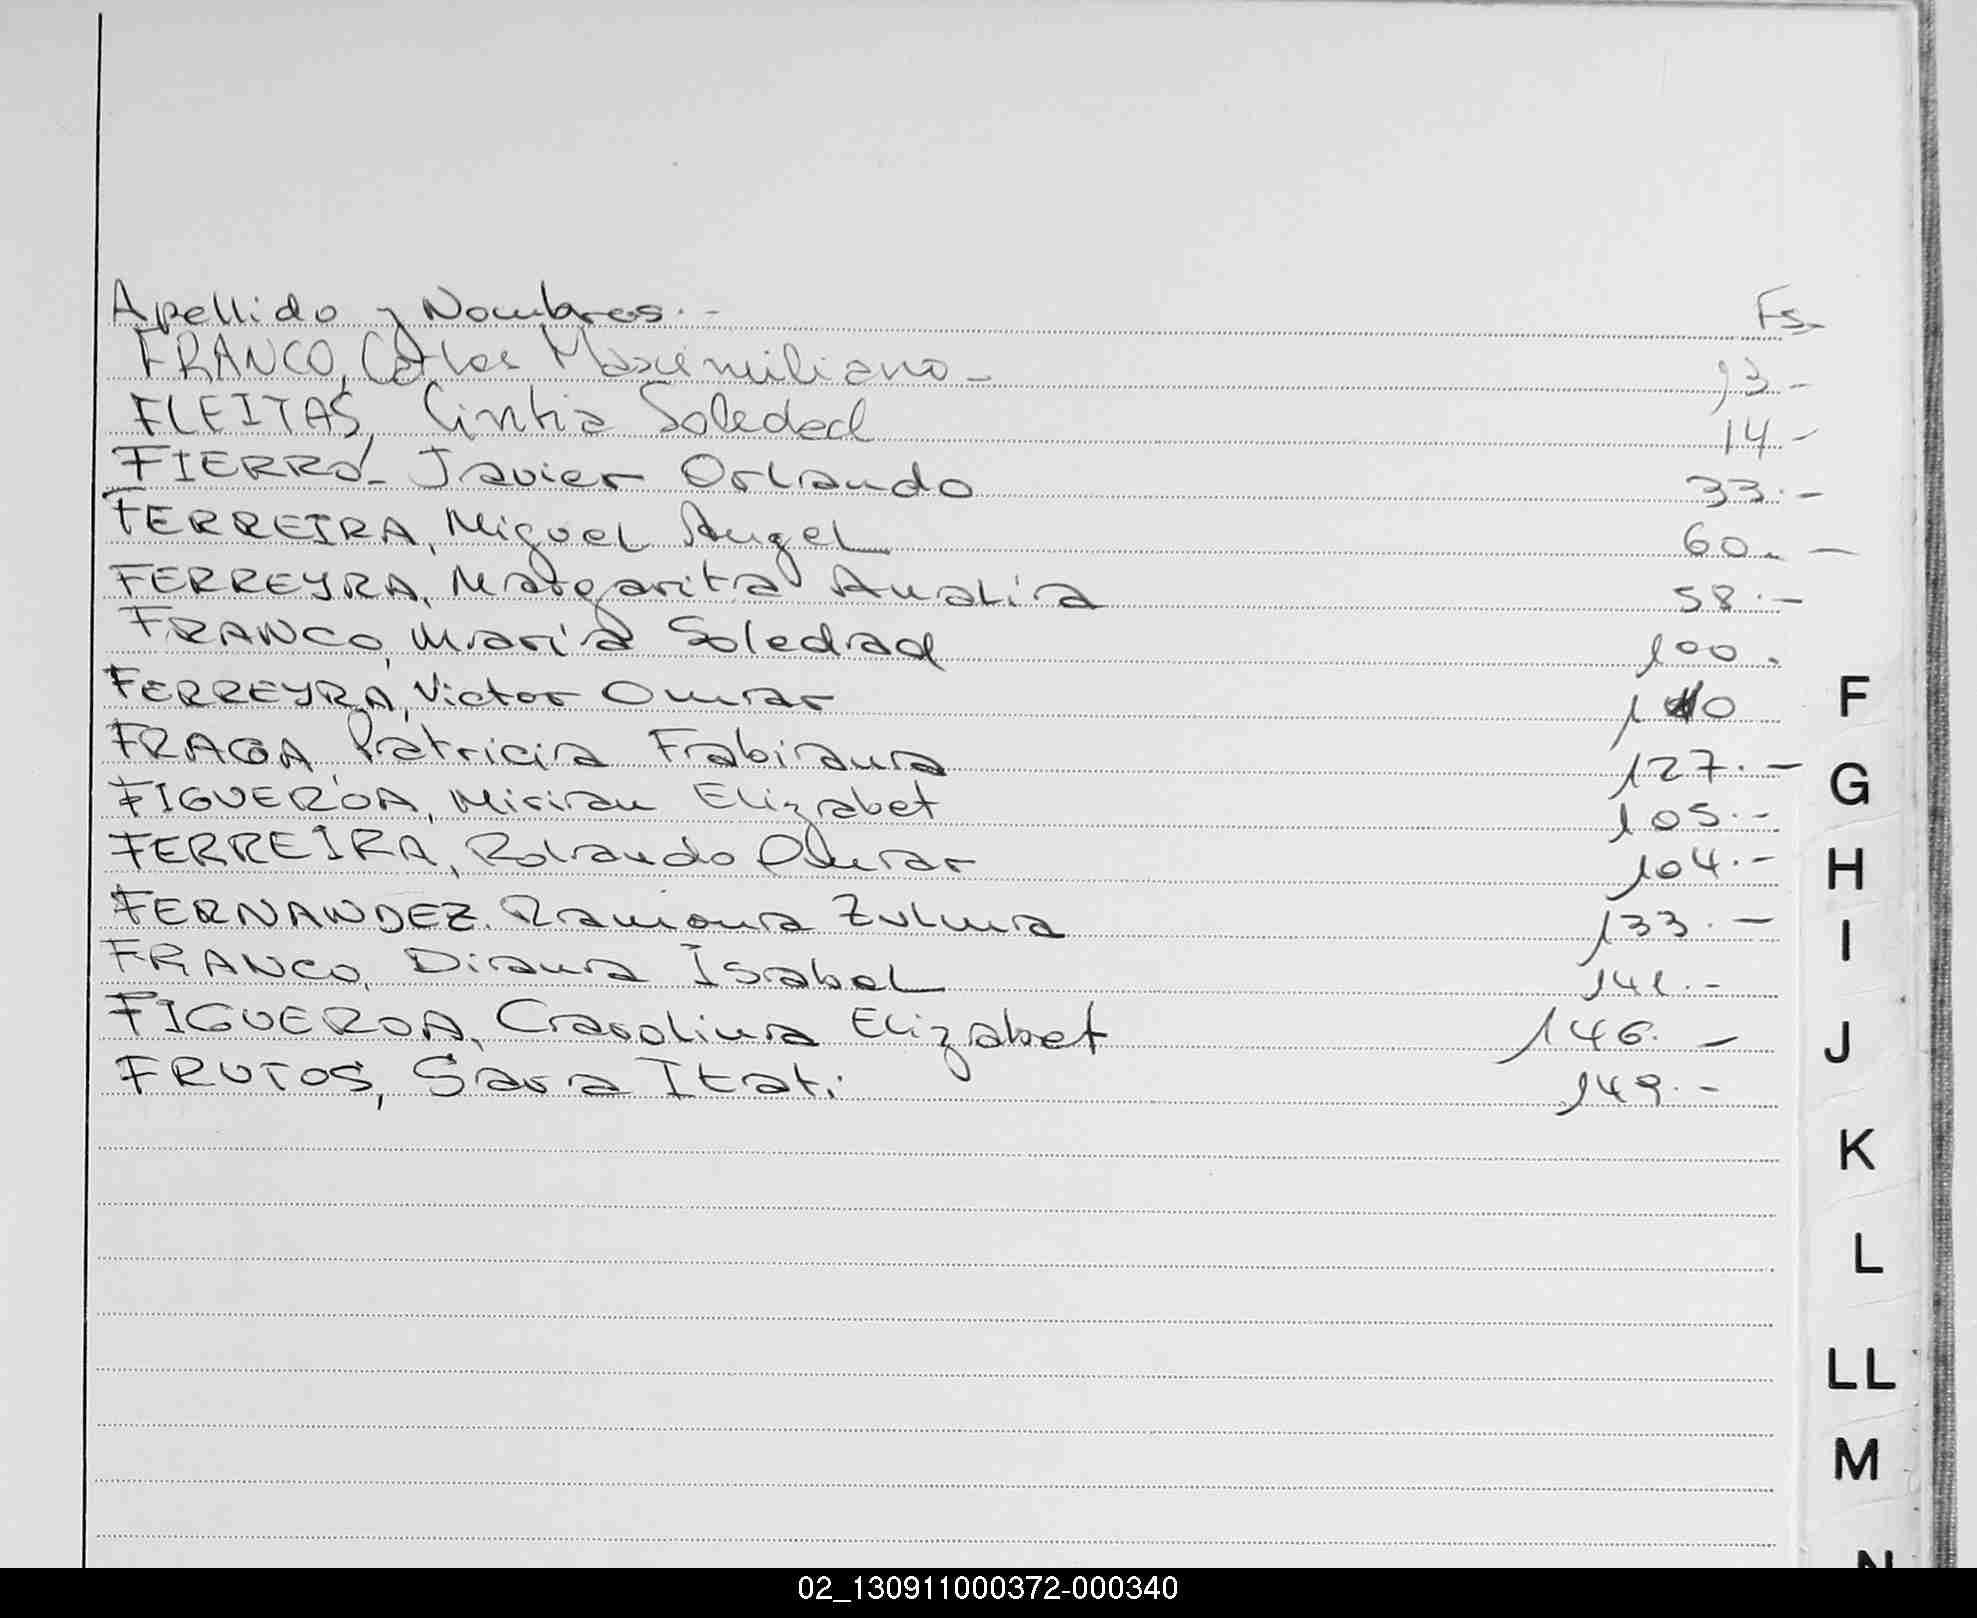 Apellido y Nombres.- Fs.
FRANCO, Carlos Maximiliano.- 13.-
FLEITAS, Cintia Soledad 14.-
FIERRO- Javier Orlando 33.-
FERREIRA, Miguel Angel 60.-
FERREYRA, Margarita Analía 58.-
FRANCO, María Soledad 100.
FERREYRA, Victor Omar 110
FRAGA, Patricia Fabiana 127.-
FIGUEROA, Mirian Elizabet 105.-
FERREIRA, Rolando Omar 104.-
FERNANDEZ. Ramona Zulma 133.-
FRANCO, Diana Isabel 141.-
FIGUEROA, Carolina Elizabet 146.-
FRUTOS, Sara Itati 149.-
F
G
H
I
J
K
L
LL
M
N
02_130911000372-000340